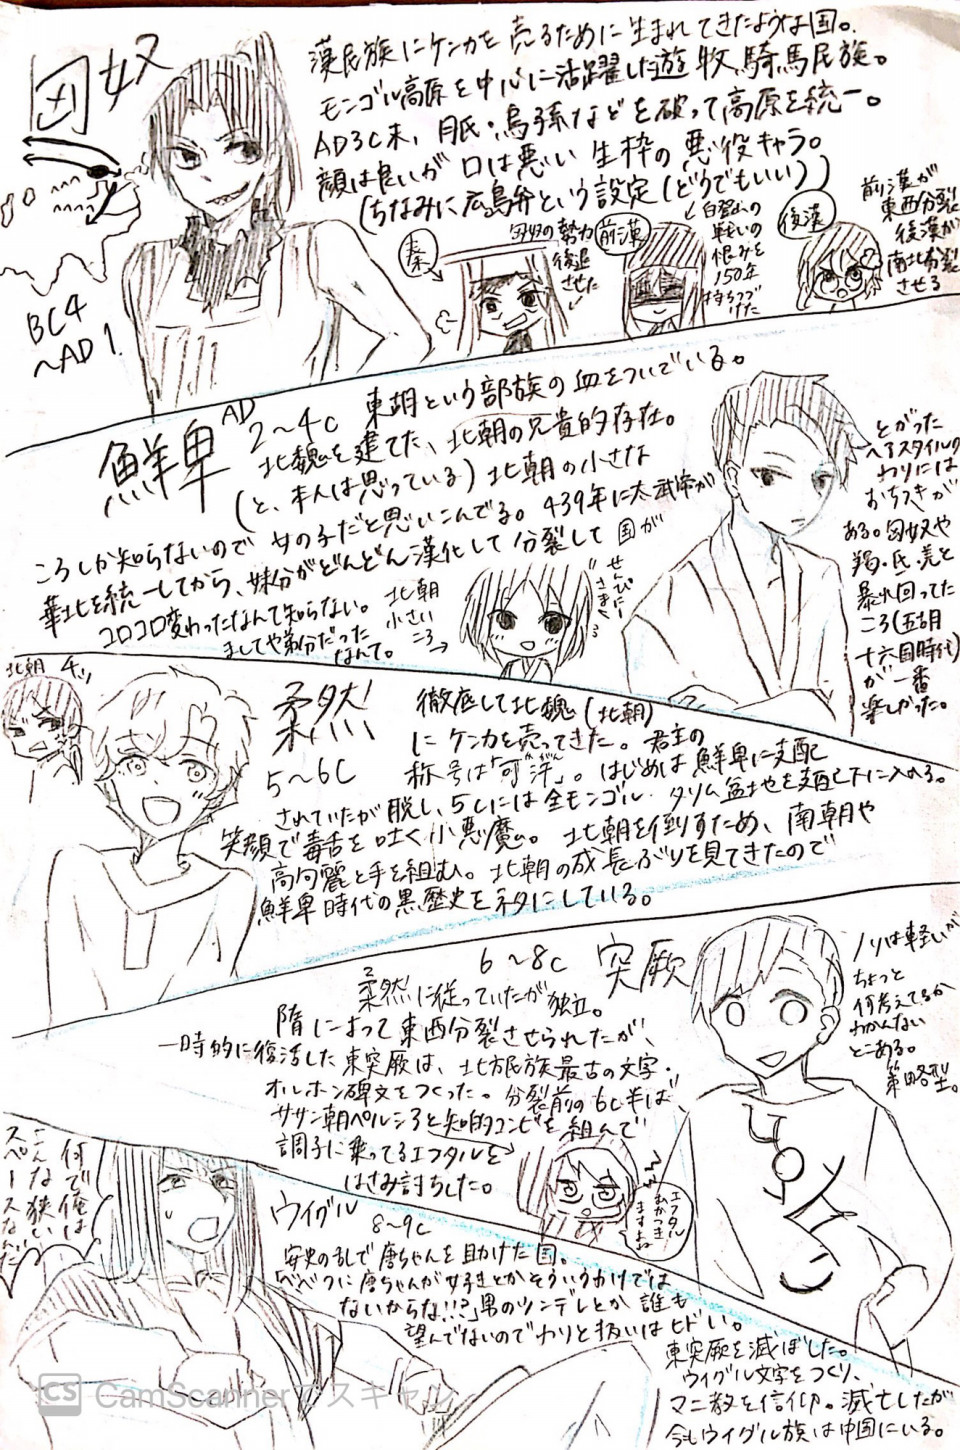 匈奴
BC4
～AD1.
漢民族にケンカを売るために生まれてきたような国。
モンゴル高原を中心に活躍した遊牧騎馬民族。
AD3C末、月氏・烏孫などを破って高原を統一。
顔は良いが口は悪い生粋の悪役キャラ。
(ちなみに広島弁という設定(どうでもいい))
秦
匈奴の勢力
後退
させた
前漢
白登山の
戦いの
恨みを
150年
持ちつづ
けた
後漢
前漢が
東西分裂
後漢が
南北分裂
させる
鮮卑
AD
2～4C
東胡という部族の血をついでいる。
北魏を建てた、北朝の兄貴的存在。
(と、本人は思っている)北朝の小さな
ころしか知らないので女の子だと思いこんでる。439年に太武帝が
華北を統一してから、妹分がどんどん漢化して分裂して国が
コロコロ変わったなんて知らない。
ましてや弟分だった
なんて。
北朝
小さい
ころ
せんぴにー
さまぁ
とがった
ヘアスタイルの
わりには
おちつきが
ある。匈奴や
羯・氐・羌と
暴れ回ってた
ころ(五胡
十六国時代)
が一番
楽しかった。
北朝
チッ
柔然
5～6C
徹底して北魏(北朝)
にケンカを売ってきた。君主の
称号は「可汗」。はじめは鮮卑に支配
かがん
されていたが脱し、5Cには全モンゴル・タリム盆地を支配下に入れる。
笑顔で毒舌を吐く小悪魔。北朝を倒すため、南朝や
高句麗と手を組む。北朝の成長ぶりを見てきたので
鮮卑時代の黒歴史をネタにしている。
6～8C
突厥
柔然に従っていたが独立。
隋によって東西分裂させられたが、
一時的に復活した東突厥は、北方民族最古の文字・
オルホン碑文をつくった。分裂前の6C半ば、
ササン朝ペルシアと知的コンビを組んで
調子に乗ってるエフタルを
はさみ討ちした。
エフタル
ムカつき
ますよね
ノリは軽いが
ちょっと
何考えてるか
わかんない
とこある。
策略型。
何で俺は
こんな狭い
スペースなんだ
ウイグル
8～9C
安史の乱で唐ちゃんを助けた国。
「べべつに唐ちゃんが好きとかそういうわけでは
ないからな!!?」男のツンデレとか誰も
望んでないのでわりと扱いはヒドい。
東突厥を滅ぼした。
ウイグル文字をつくり、
マニ教を信仰。滅亡したが
今もウイグル族は中国にいる。
CS CamScannerでスキャン